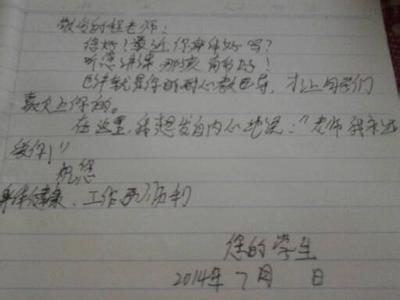 敬爱的程老师:
您好!最近你身体好吗?
听您讲课
就是你的耐心教
才让同学们
喜欢上你的。
在这里,我想发自内心地说:"老师我永远
爱你!"
祝您
身体健康、工作顺利
您的学生
2014年7月 日